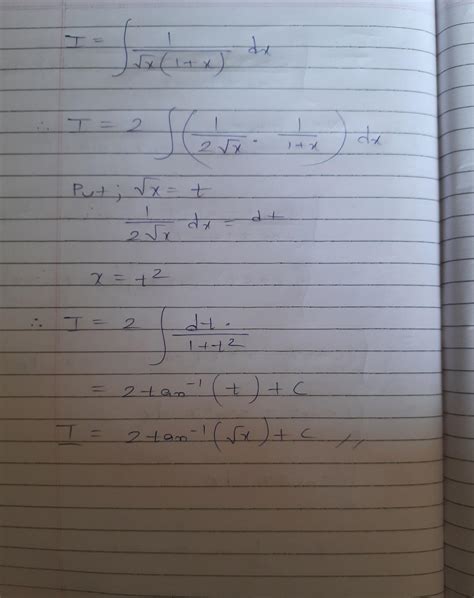 I = ∫ 1/(√x(1+x)) dx
∴ I = 2 ∫ (1/(2√x) · 1/(1+x)) dx
Put; √x = t
∴ 1/(2√x) dx = dt
x = t²
∴ I = 2 ∫ dt/(1+t²)
= 2tan⁻¹(t) + C
I = 2tan⁻¹(√x) + C //